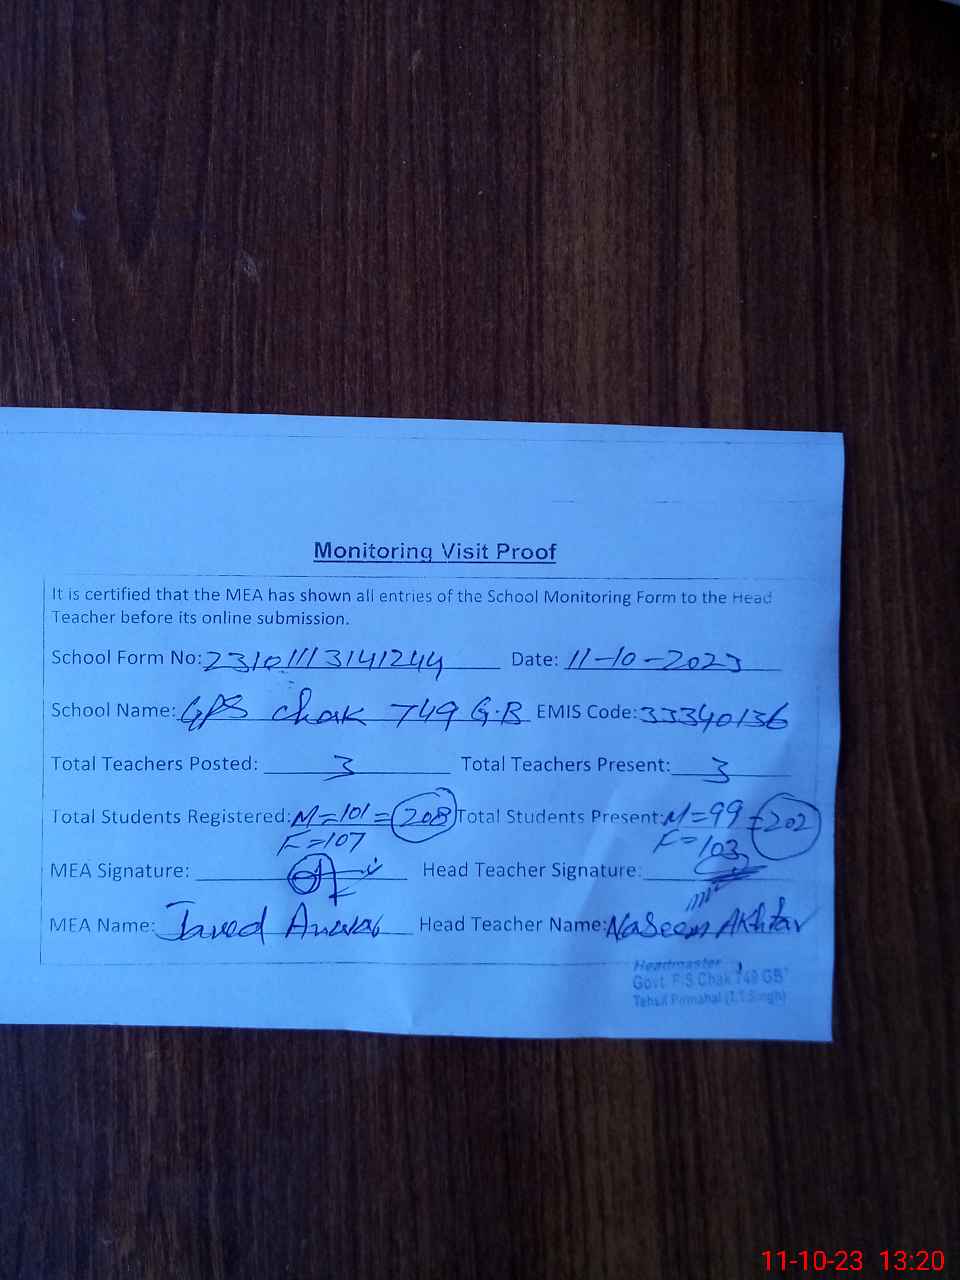 Monitoring Visit Proof
It is certified that the MEA has shown all entries of the School Monitoring Form to the Head
Teacher before its online submission.
School Form No: 23101113141244 Date: 11-10-2023
School Name: GPS Chak 749 G.B EMIS Code: 33340136
Total Teachers Posted: 3 Total Teachers Present: 3
Total Students Registered: M=101 = 208 Total Students Present: M=99 = 202
F=107 F=103
MEA Signature: Head Teacher Signature:
MEA Name: Javed Anwar Head Teacher Name: Naseem Akhtar
Headmaster
Govt. P/S Chak 749 GB
Tehsil Pirmahal (T.T.Singh)
11-10-23 13:20